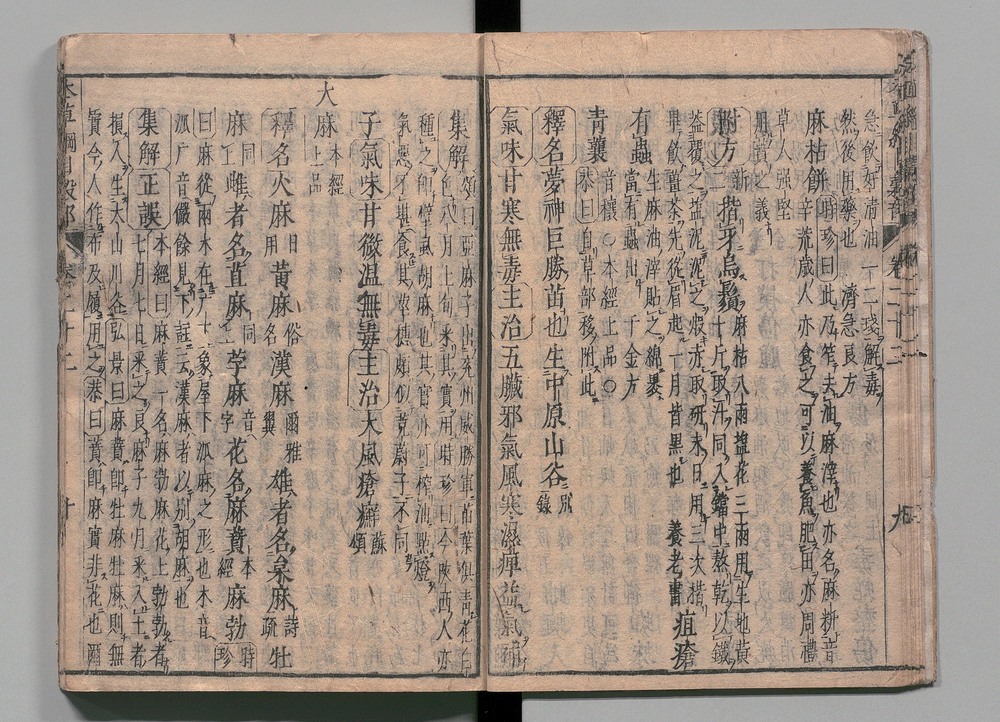 急飲好清油一二琖解毒
然後用藥也 濟急良方
麻枯餅 時珍曰此乃笮去油麻滓也亦名麻籸音
辛荒歲人亦食之可以養魚肥田亦周禮
草人強堅
用蕡之義
附方 新二 揩牙烏鬚 麻枯八兩鹽花三兩用生地黃
十斤取汁同入鐺中熬乾以鐵
蓋覆之鹽泥泥之煅赤取研末日用三次揩
畢飲薑茶先從眉起一月皆黑也 養老書 疽瘡
有蟲 生麻油滓貼之綿裹
當有蟲出 千金方
青蘘 音穰○本經上品○
恭曰自草部移附此
釋名 夢神巨勝苗也生中原山谷 別錄
氣味 甘寒無毒 主治 五臟邪氣風寒濕痺益氣補
集解 頌曰亞麻子出兗州威勝軍苗葉俱青花白
色八月上旬采其實用時珍曰今陝西人亦
種之即壁虱胡麻也其實亦可榨油點燈
氣惡不堪食其莖穗頗似茺蔚子不同
子 氣味 甘微溫無毒 主治 大風瘡癬 蘇頌
大
麻 本經上品
釋名 火麻 日用 黃麻 俗名 漢麻 爾雅翼 雄者名枲麻 詩疏 牡
麻 同上 雌者名苴麻 同上 荸麻 音字 花名麻蕡 本經 麻勃 時珍
曰麻從兩朩在广下象屋下派麻之形也朩音
派广音儼餘見下註云漢麻者以別胡麻也
集解 正誤 本經曰麻蕡一名麻勃麻花上勃勃者
七月七日采之良麻子九月采入土者
損人生太山川谷弘景曰麻蕡即牡麻牡麻則無
實今人作布及履用之恭曰蕡即麻實非花也爾